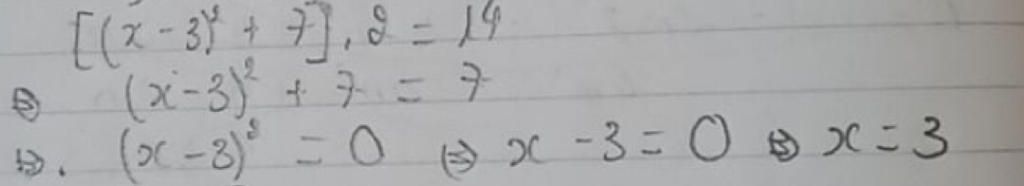 [(x - 3)² + 7] . 2 = 14
⇔ (x - 3)² + 7 = 7
⇔ . (x - 3)² = 0 ⇔ x - 3 = 0 ⇔ x = 3